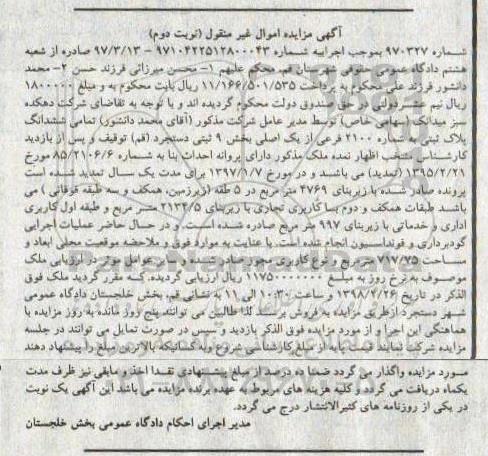 آگهی مزایده اموال غیر منقول (نوبت دوم)
شماره ۹۷۰۳۲۷ بموجب اجراییه شماره ۹۷۱۰۴۲۲۵۱۲۸۰۰۰۴۳ - ۹۷/۳/۱۳ صادره از شعبه
هشتم دادگاه عمومی حقوقی شهرستان قم محکم علیهم ۱- محسن میرزائی فرزند حسن ۲- محمد
دانشور فرزند علی محکوم به پرداخت ۱۱/۱۶۶/۵۰۱/۵۳۵ ریال بابت محکوم به و مبلغ ۱۸۰۰۰۰۰
ریال نیم عشر دولتی در حق صندوق دولت محکوم گردیده اند و با توجه به تقاضای شرکت دهکده
سبز میدانک (سهامی خاص) توسط مدیر عامل شرکت مذکور (آقای محمد دانشور) تمامی ششدانگ
پلاک ثبتی به شماره ۲۱۰۰ فرعی از یک اصلی بخش ۹ ثبتی دستجرد (قم) توقیف و پس از بازدید
کارشناس منتخب اظهار نمده ملک مذکور دارای پروانه احداث بنا به شماره ۸۵/۲۱۰۶/۶ مورخ
۱۳۹۵/۲/۲۱ (تمدید) می باشند و در مورخ ۱۳۹۷/۱/۷ برای مدت یک سال تمدید شده است
پرونده صادر شده با زیربنای ۴۷۶۹ متر مربع در ۵ طقه (زیرزمین، همکف و سه طبقه فوقانی) می
باشد طبقات همکف و دوم با کاربری تجاری با زیربنای ۲۱۳۴/۵ متر مربع و طبقه اول کاربری
اداری و خدماتی با زیربنای ۹۹۷ متر مربع صادره شده است. و در حال حاضر عملیات اجرایی
گودبرداری و فونداسیون انجام شده است. با عنایت به موارد فوق و ملاحضه موقعیت محلی ابعاد و
مساحت ۷۱۷/۷۵ متر مربع نوع کاربری مجوز صادر شده و سایر عوامل موثر در ارزیابی ملک
موصوف به نرخ روز به مبلغ ۱۱۷۵۰۰۰۰۰۰۰ ریال ارزیابی گردیده. که مقرر گردید ملک فوق
الذکر در تاریخ ۱۳۹۸/۴/۲۶ و ساعت ۱۰:۳۰ الی ۱۱ به نشانی قم، بخش خلجستان دادگاه عمومی
شهر دستجرد ازطریق مزایده به فروش برسد. لذا طالبین می توانند پنج روز مانده به روز مزایده با
هماهنگی این اجرا و از مورد مزایده فوق الذکر بازدید و سپس در صورت تمایل می توانند در جلسه
مزایده شرکت نمایند قیمت پایه از مبلغ کارشناسی شروع و به کسانیکه بالاترین مبلغ را پیشنهاد دهند
مورد مزایده واگذار می گردد ضمنا ده درصد از مبلغ پیشنهادی نقدا اخذ و مابقی نیز ظرف مدت
یکماه دریافت می گردد و کلیه هزینه های مربوط به عهده برنده مزایده می باشد این آگهی یک نوبت
در یکی از روزنامه های کثیرالانتشار درج می گردد.
مدیر اجرای احکام دادگاه عمومی بخش خلجستان